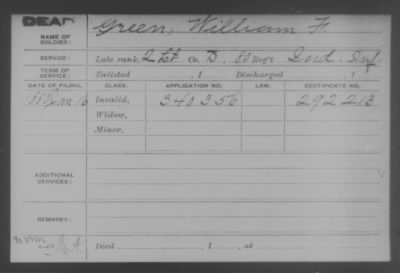 DEAD
NAME OF SOLDIER: Green, William F.
SERVICE: Late rank, 2 Lt Co. D, 80 Reg't Ind. Inf.
TERM OF SERVICE: Enlisted , 1 Discharged , 1
DATE OF FILING. CLASS. APPLICATION NO. LAW. CERTIFICATE NO.
1880 Jan 16 Invalid, 340356 292213
Widow,
Minor,
ADDITIONAL SERVICES:
REMARKS:
Died , 1 , at